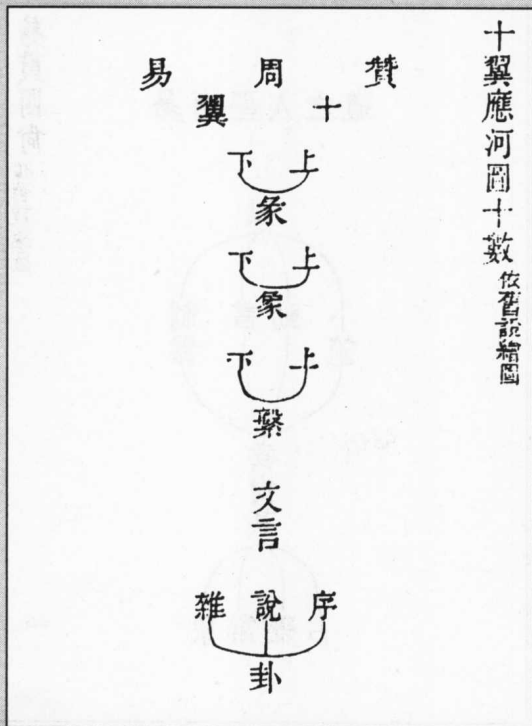 十翼應河圖十數 依舊說繪圖
贊周易
十翼
上下
彖
上下
象
上下
繫
文言
序說雜
卦